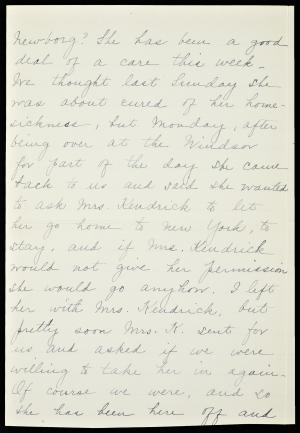 Newborg? She has been a good
deal of a care this week.
We thought last Sunday she
was about cured of her home-
sickness, but Monday, after
being over at the Windsor
for part of the day she came
back to us and said she wanted
to ask Mrs. Kendrick to let
her go home to New York, to
stay, and if Mrs. Kendrick
would not give her permission
she would go anyhow. I left
her with Mrs. Kendrick, but
pretty soon Mrs. K. sent for
us and asked if we were
willing to take her in again.
Of course we were, and so
she has been here off and